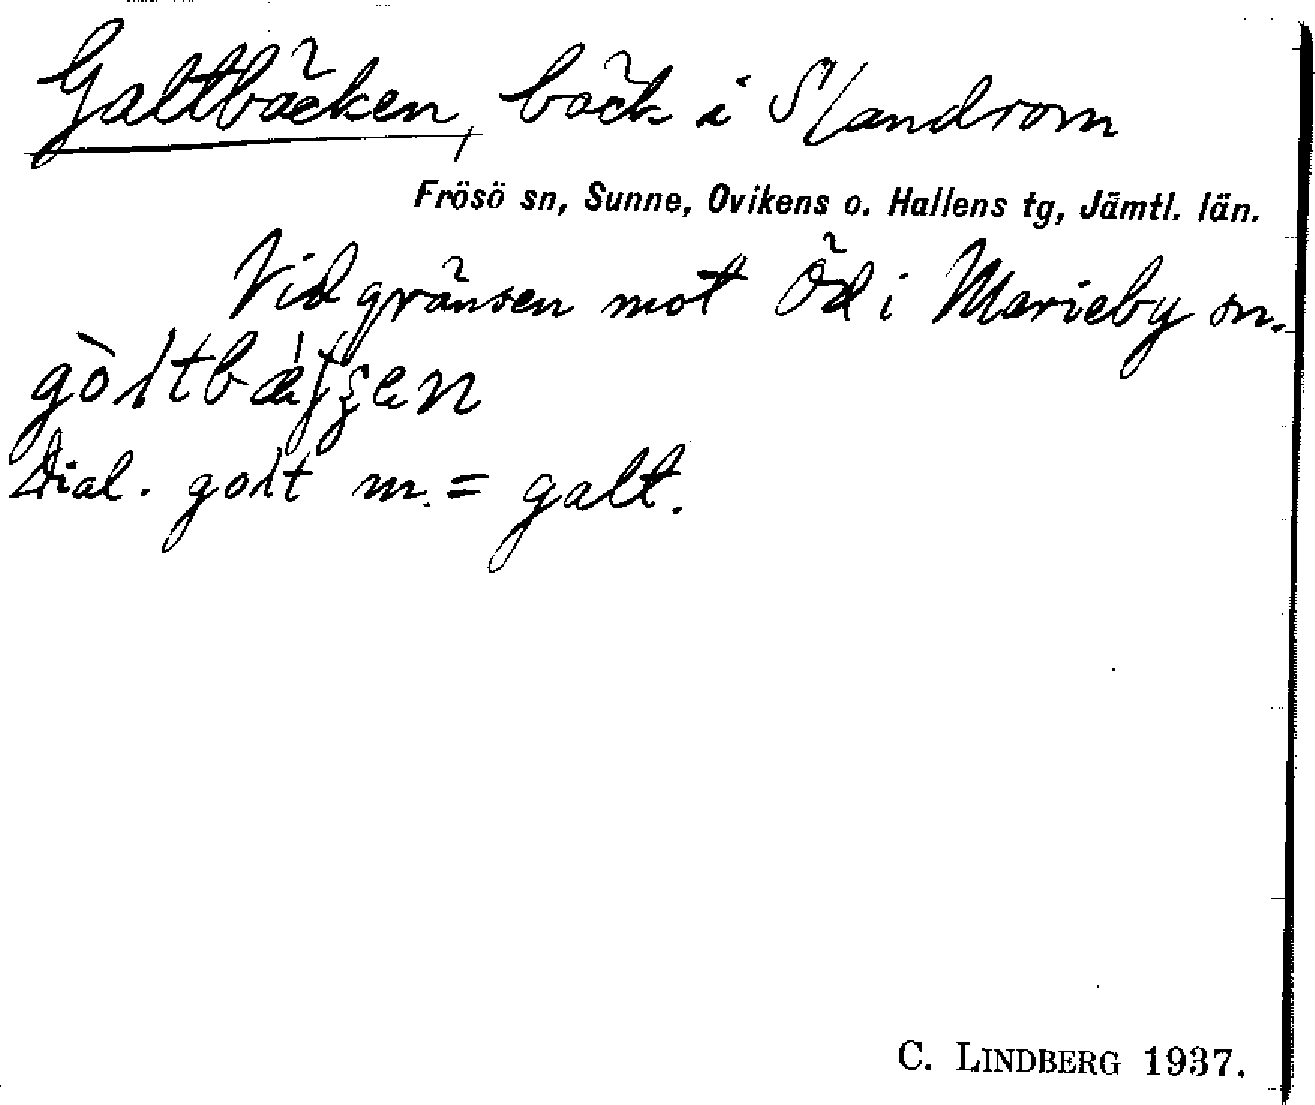 Galtbäcken, bäck i Slandrom
Frösö sn, Sunne, Ovikens o. Hallens tg, Jämtl. län.
Vid gränsen mot Öd i Marieby sn.
Dial. golt m. = galt.
C. LINDBERG 1937.